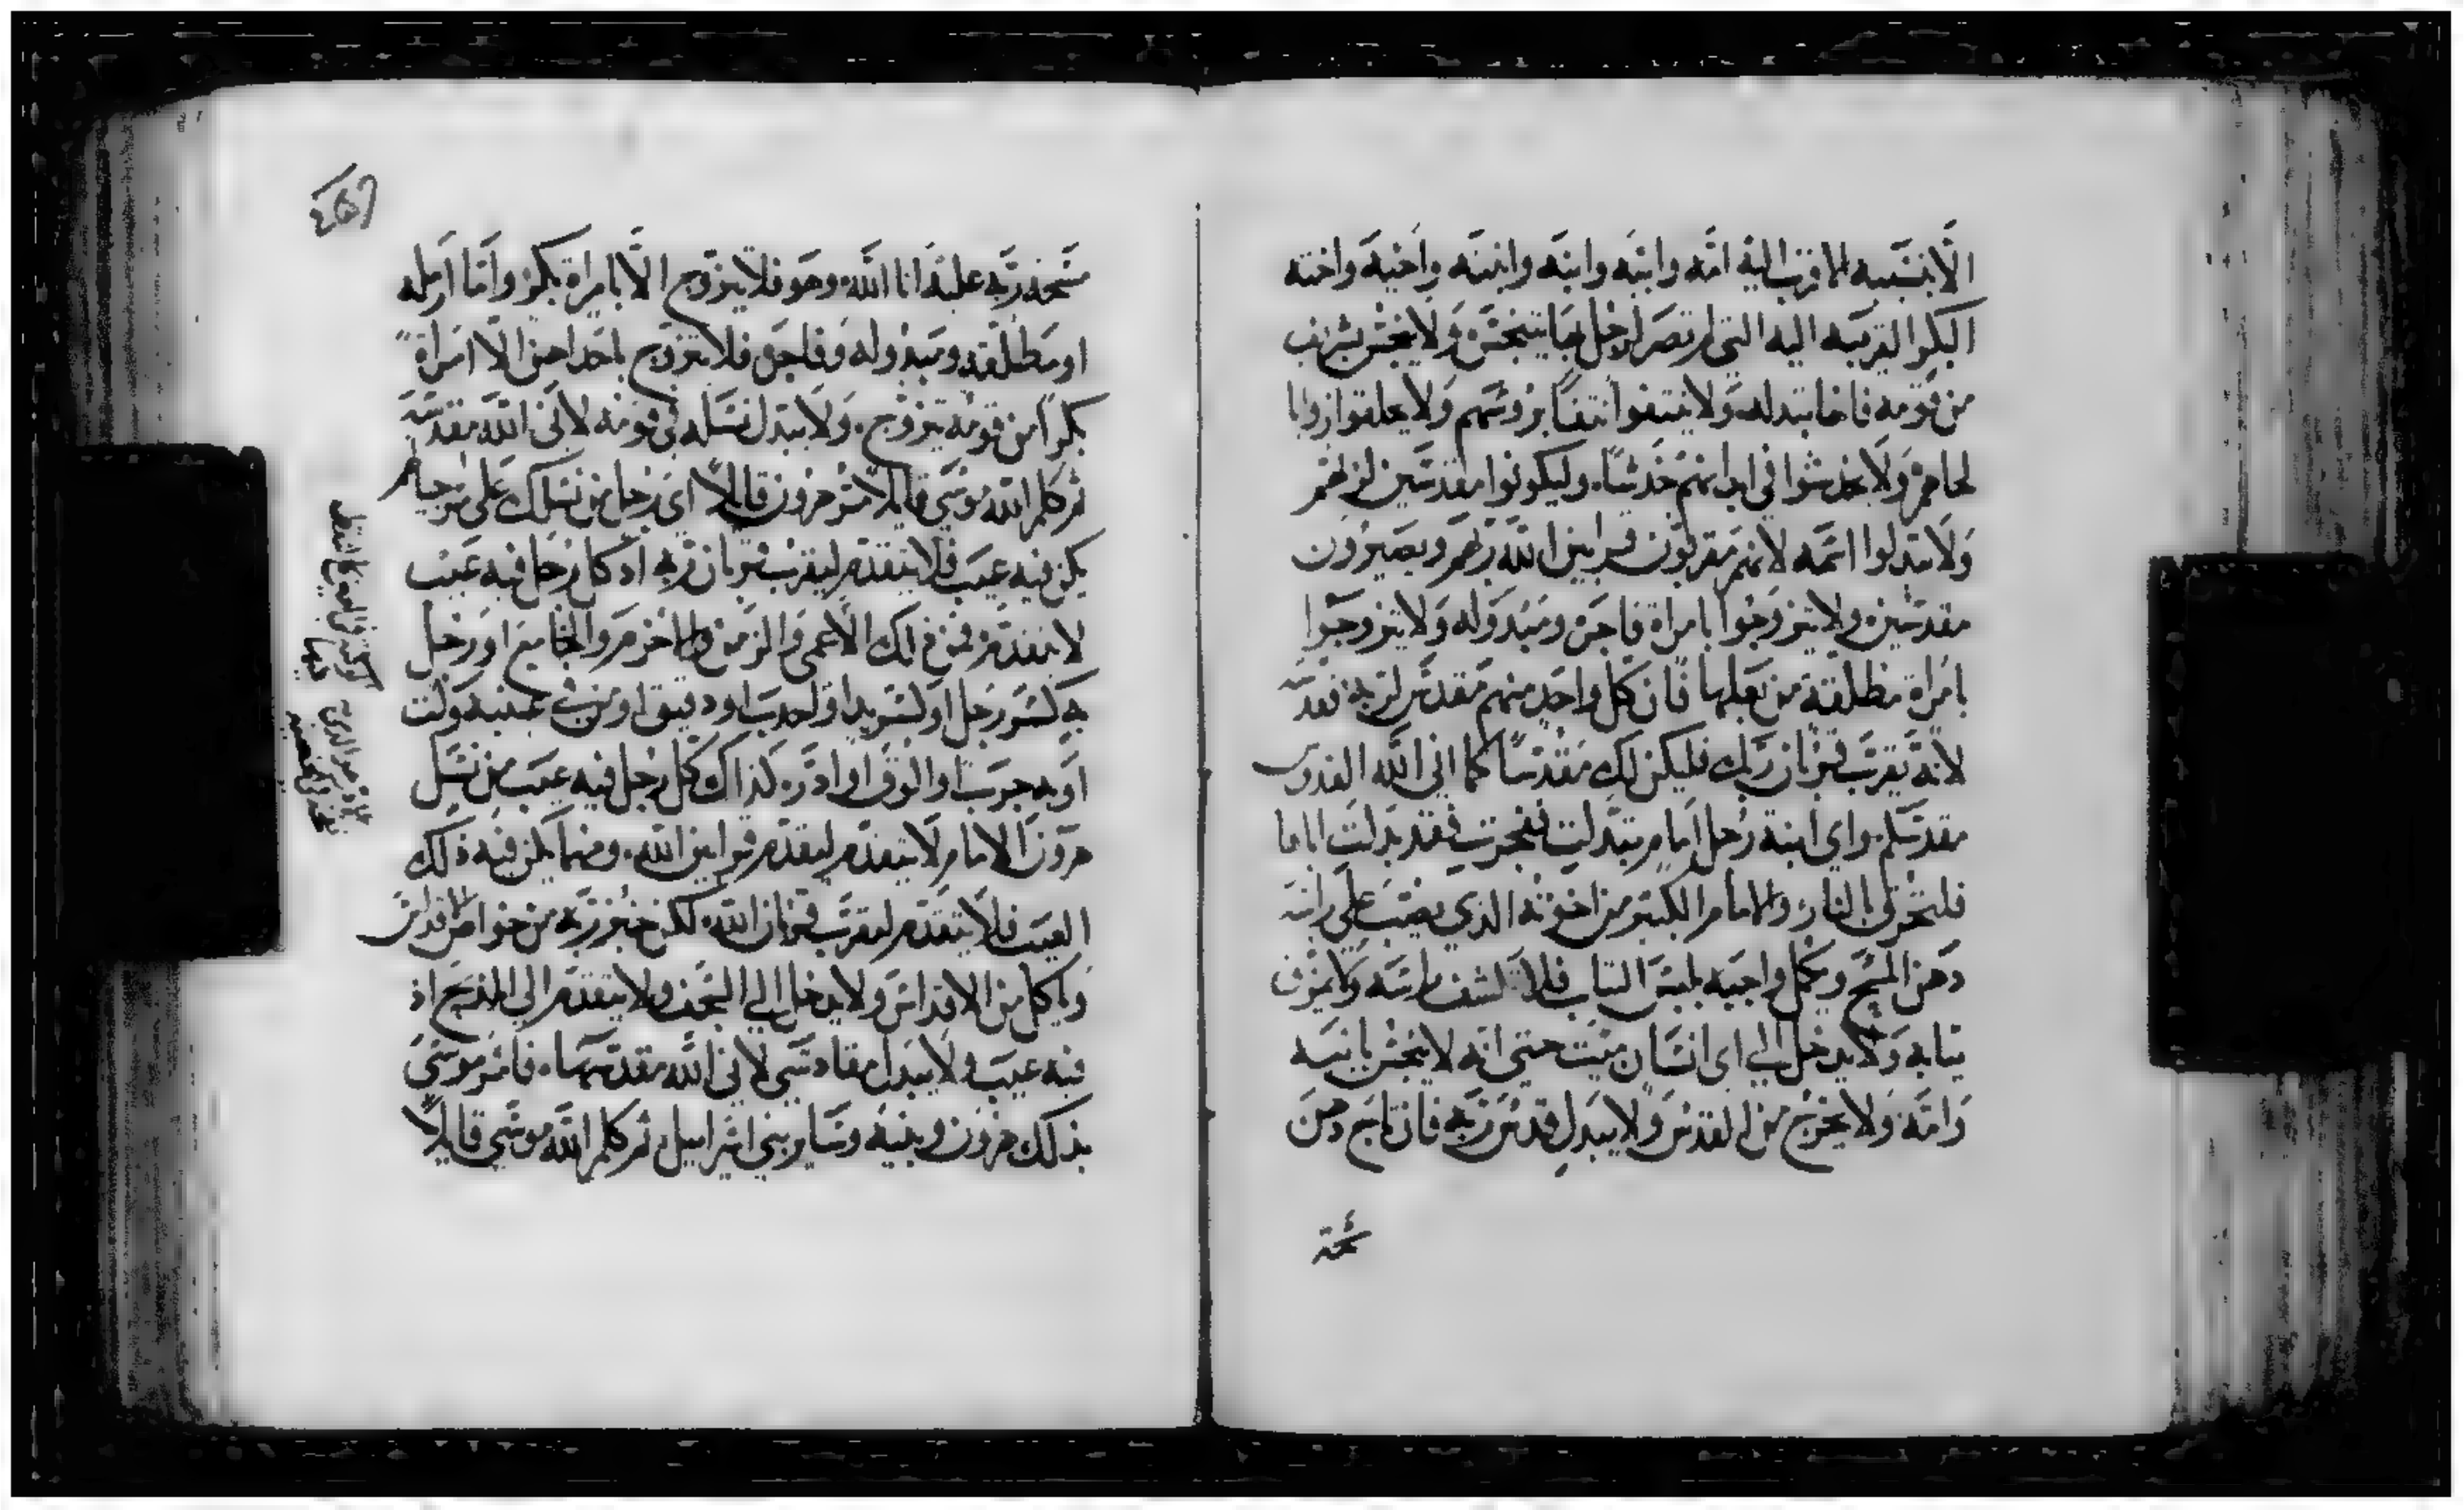 الا بنسيبه الاقرب اليه امه وابيه وابنه وابنته واخيه واخته
البكر القريبه اليه التي لم تصر لرجل بها يتنجس ولا ينجس شريف
من قومه فانها بتدله ولا ينتفوا نتفا بروسهم ولا يحلقوا زوايا
لحاهم ولا يخدشوا في ابدانهم خدشا وليكونوا مقدسين لربهم
ولا يبدلوا اسمه لانهم مقربون قرابين الله ربهم ويصيرون
مقدسين ولا يتزوجوا بامراة فاجرة ومبدوله ولا يتزوجوا
بامراة مطلقة من بعلها فان كل واحد منهم مقدس لربه فقدسه
لانه يقرب قربان ربك فليكن لك مقدسا كما اني الله القدوس
مقدسكم واي ابنة رجل امام تبدلت ففجرت فقد بدلت اباها
فلتحرق بالنار والامام الكبير من اخوته الذي يصب على راسه
دهن المسح وكمل واجبه بلبس الثياب فلا يكشف راسه ولا يمزق
ثيابه ولا يدخل الى اي انسان ميت حتى انه لا ينجس بابيه
وامه ولا يخرج من القدس ولا يبدل قدس ربه فان تاج دهن
مسحة
مسحه ربه عليه انا الله وهو فلا يتزوج الا بامراة بكر واما ارمله
او مطلقه ومبدوله وفاجرة فلا يتزوج باحداهن الا امراة
بكرا من قومه يتزوج ولا يبدل نسله في قومه لاني الله مقدسه
ثم كلم الله موسى قايلا مر هرون قايلا اي رجل من نسلك على مر اجيالهم
يكن فيه عيب فلا يتقدم ليقرب قربان ربه اذ كل رجل فيه عيب
لا يتقدم فمن ذلك الاعمى والزمن والاخرم والجامع او رجل
به كسر رجل او كسر يد او احدب او دقيق او من في عينيه
او به جرب او الوق او ادره كذاك كل رجل فيه عيب من نسل
هرون الامام لا يتقدم ليقدم قرابين الله ومهما يكن فيه ذلك
العيب فلا يتقدم ليقرب قربان الله لكن خبز ربه من خواص الاقداس
وياكل من الاقداس ولا يدخل الى السجف ولا يتقدم الى المذبح اذ
فيه عيب ولا يبدل مقادسي لاني الله مقدسها فامر موسى
بذلك هرون وبنيه وساير بني اسراييل ثم كلم الله موسى قايلا